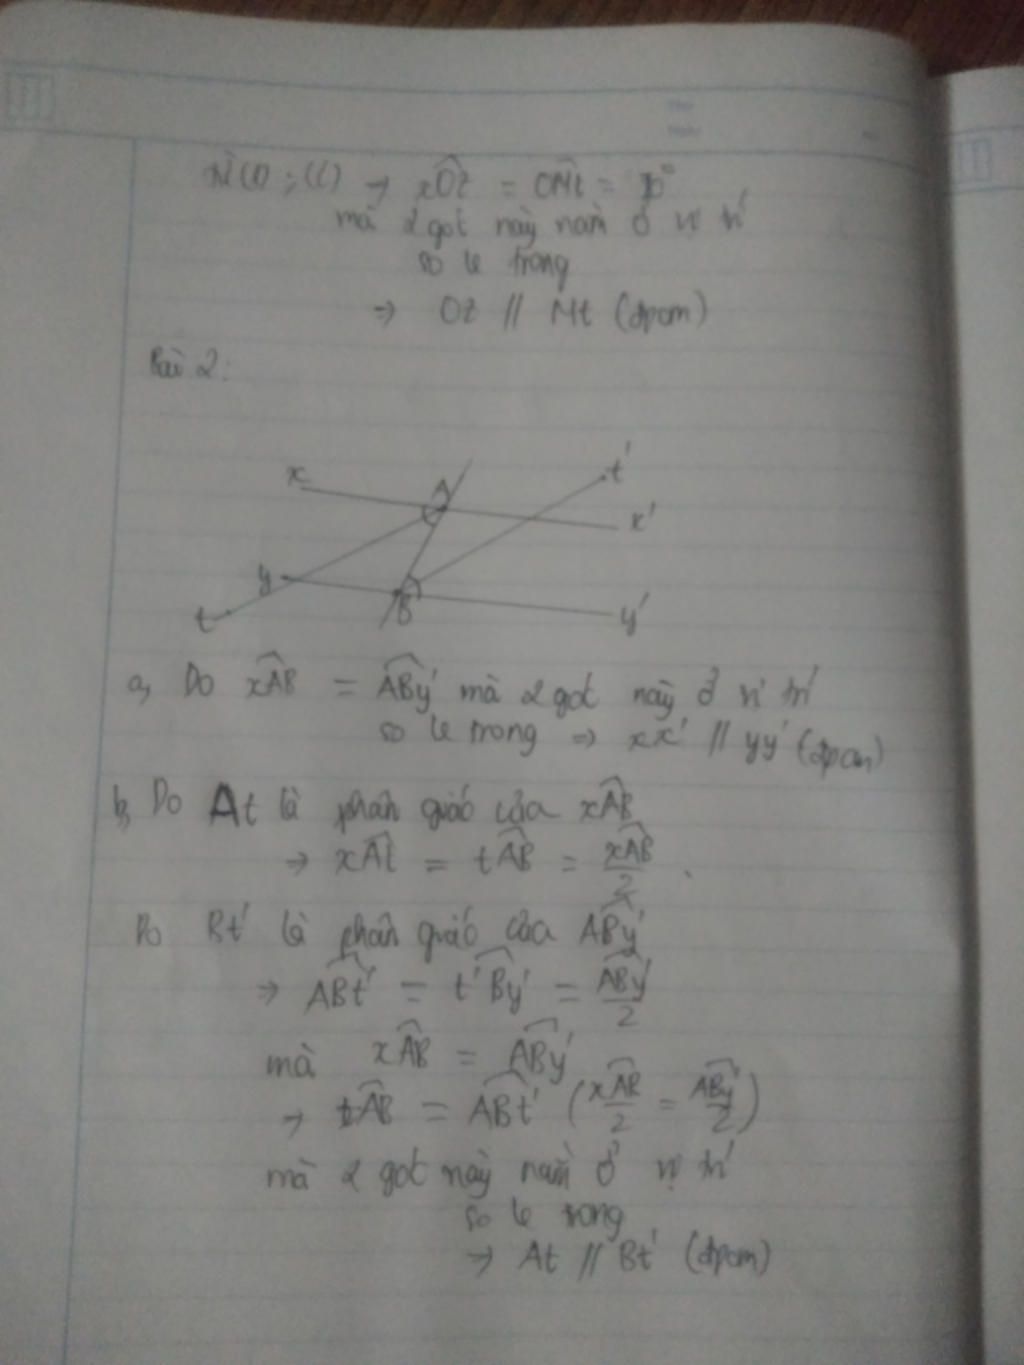 Từ (1); (2) → xOz = OMt = 70°
mà 2 góc này nằm ở vị trí
so le trong
⇒ Oz // Mt (đpcm)
Bài 2:
x A t'
x'
y B
t y'
a, Do xAB = ABy' mà 2 góc này ở vị trí
so le trong ⇒ xx' // yy' (đpcm)
b, Do At là phân giác của xAB
→ xAt = tAB = xAB/2
Do Bt' là phân giác của ABy'
→ ABt' = t'By' = ABy'/2
mà xAB = ABy'
→ tAB = ABt' (xAB/2 = ABy'/2)
mà 2 góc này nằm ở vị trí
so le trong
→ At // Bt' (đpcm)